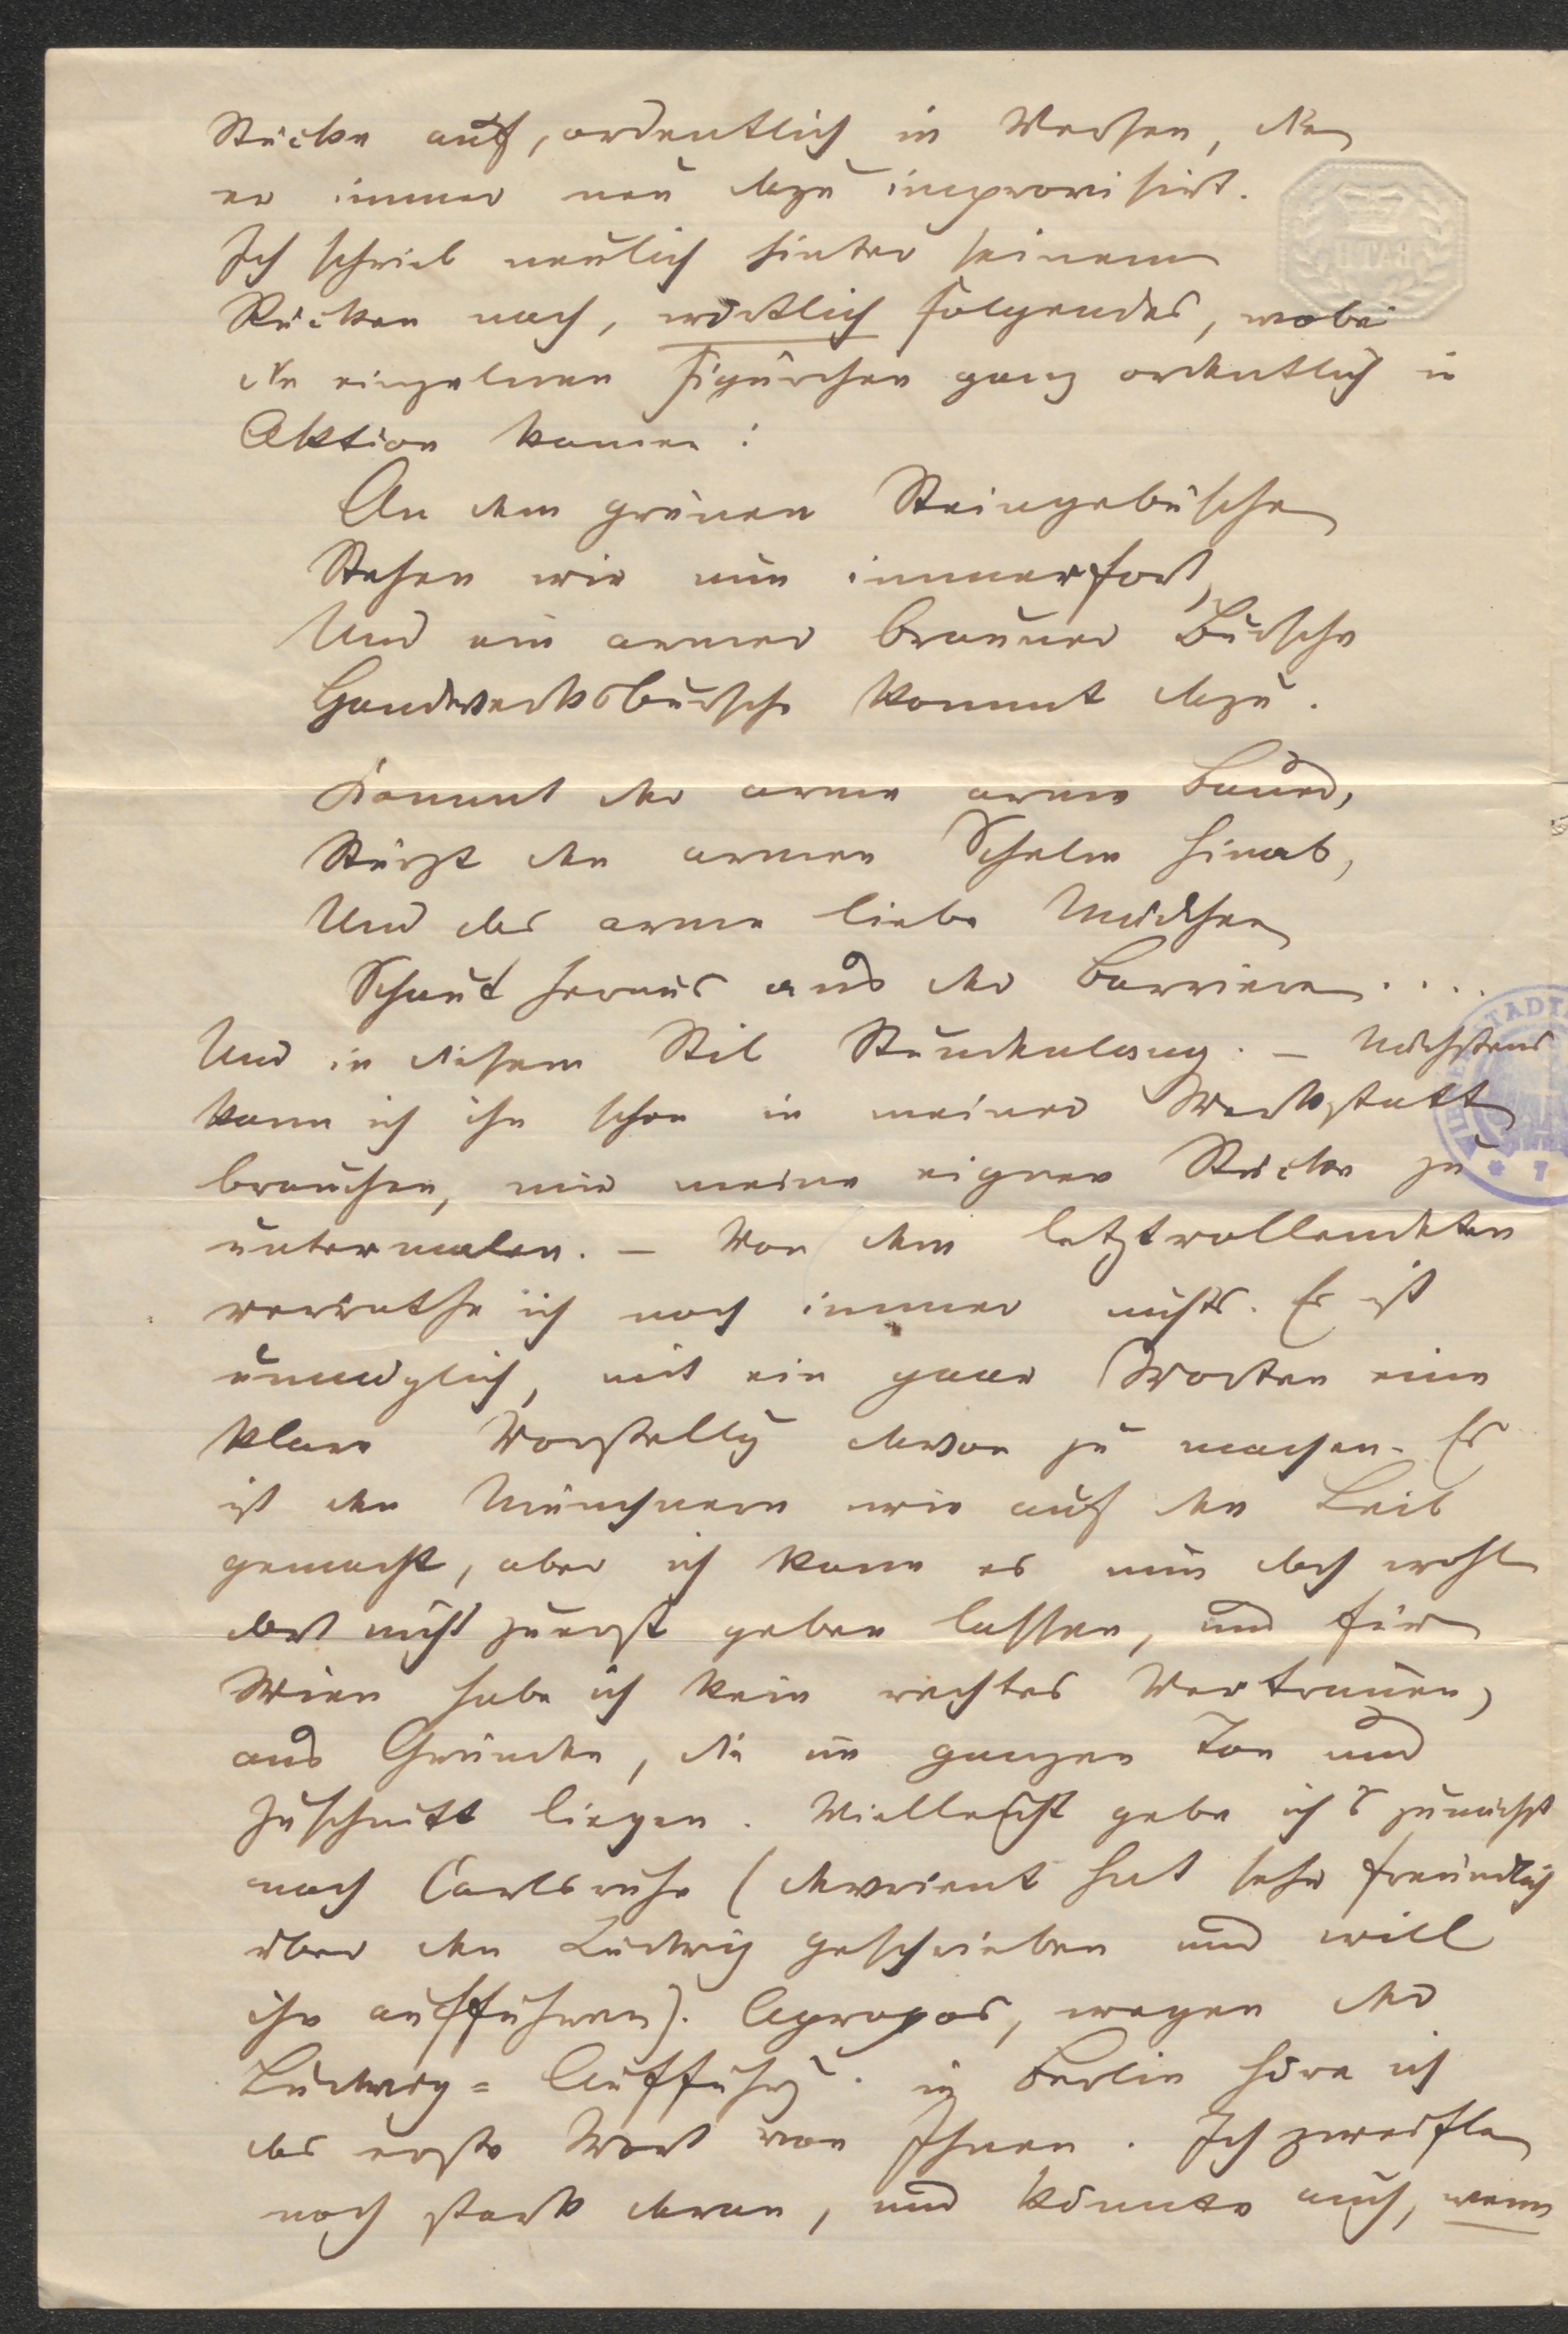 Stücke auf, ordentlich in Versen, die
er immer neu dazu improvisirt.
Ich schrieb neulich hinter seinem
Rücken nach, wörtlich folgendes, wobei
die einzelnen Figürchen ganz ordentlich in
Aktion kamen:
An dem grünen Steingebüsche
Stehen wir nun immerfort,
Und ein armer brauner Bursche
Handwerksbursche kommt dazu.
Kommt der arme arme Bauer,
Stürzt den armen Schelm hinab,
Und das arme liebe Mädchen
Schaut heraus aus der Barriere....
Und in diesem Stil Stundenlang. – Nächstens
kann ich ihn schon in meiner Werkstatt
brauchen, mir meine eignen Stücke zu
untermalen. – Von dem letztvollendeten
verrathe ich noch immer nichts. Es ist
unmöglich, mit ein paar Worten eine
klare Vorstellg davon zu machen. Es
ist den Münchnern wie auf den Leib
gemacht, aber ich kann es nun doch wohl
dort nicht zuerst geben lassen, und für
Wien habe ich kein rechtes Vertrauen,
aus Gründen, die im ganzen Ton und
Zuschnitt liegen. Vielleicht gebe ich's zunächst
nach Carlsruhe (Devrient hat sehr freundlich
über den Ludwig geschrieben und will
ihn aufführen). Apropos, wegen der
Ludwig=Aufführg. in Berlin höre ich
das erste Wort von Ihnen. Ich zweifle
noch stark daran, und könnte auch, wenn